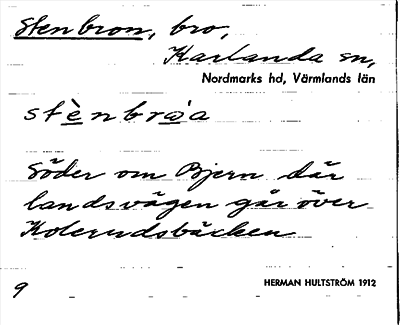 Stenbron, bro,
Karlanda sn,
Nordmarks hd, Värmlands län
stènbrωa
Söder om Bjern där
landsvägen går över
Kolerudsbäcken
9
HERMAN HULTSTRÖM 1912